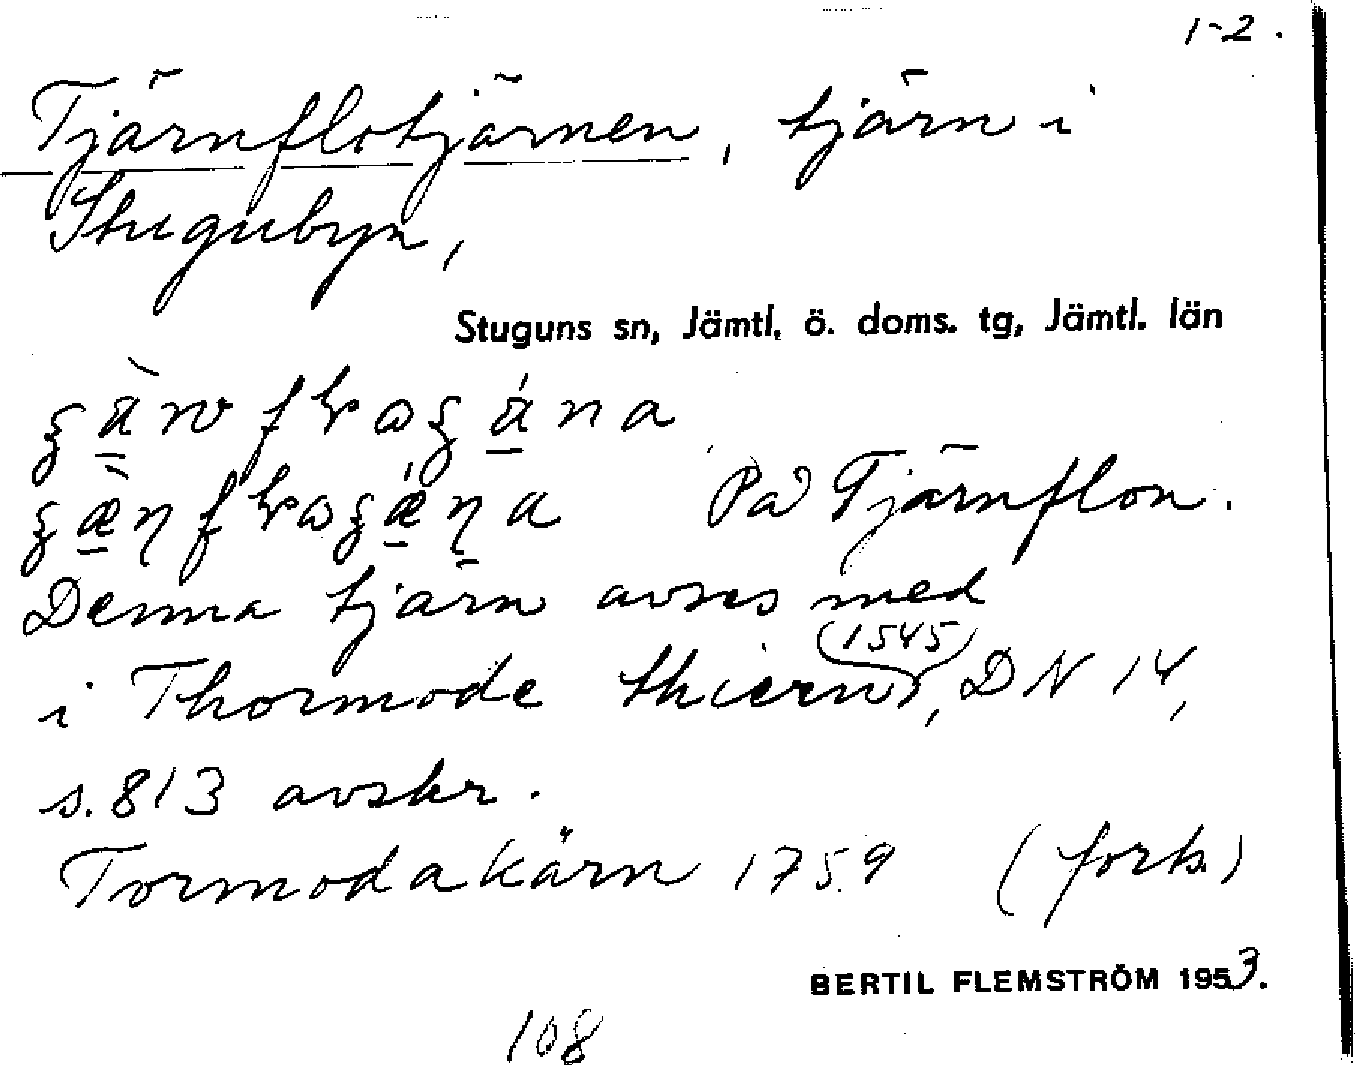 1-2.
Tjärnflotjärnen, tjärn i
Stugubyn,
Stuguns sn, Jämtl. ö. doms. tg, Jämtl. län
På Tjärnflon.
Denna tjärn avses med
(1545)
i Thormode thiernn, DN 14,
s. 813 avskr.
Tormodakärn 1759 (forts.)
BERTIL FLEMSTRÖM 1953.
108